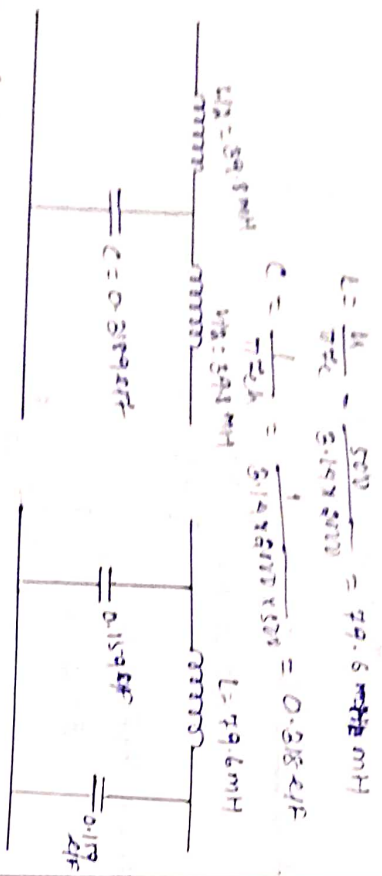 L = k / πfc = 500 / 3.14 × 2000 = 79.6 mH
C = 1 / πfck = 1 / 3.14 × 2000 × 500 = 0.318 μF
L/2 = 39.8 mH
L/2 = 39.8 mH
C = 0.318 μF
L = 79.6 mH
0.159 μF
0.159 μF